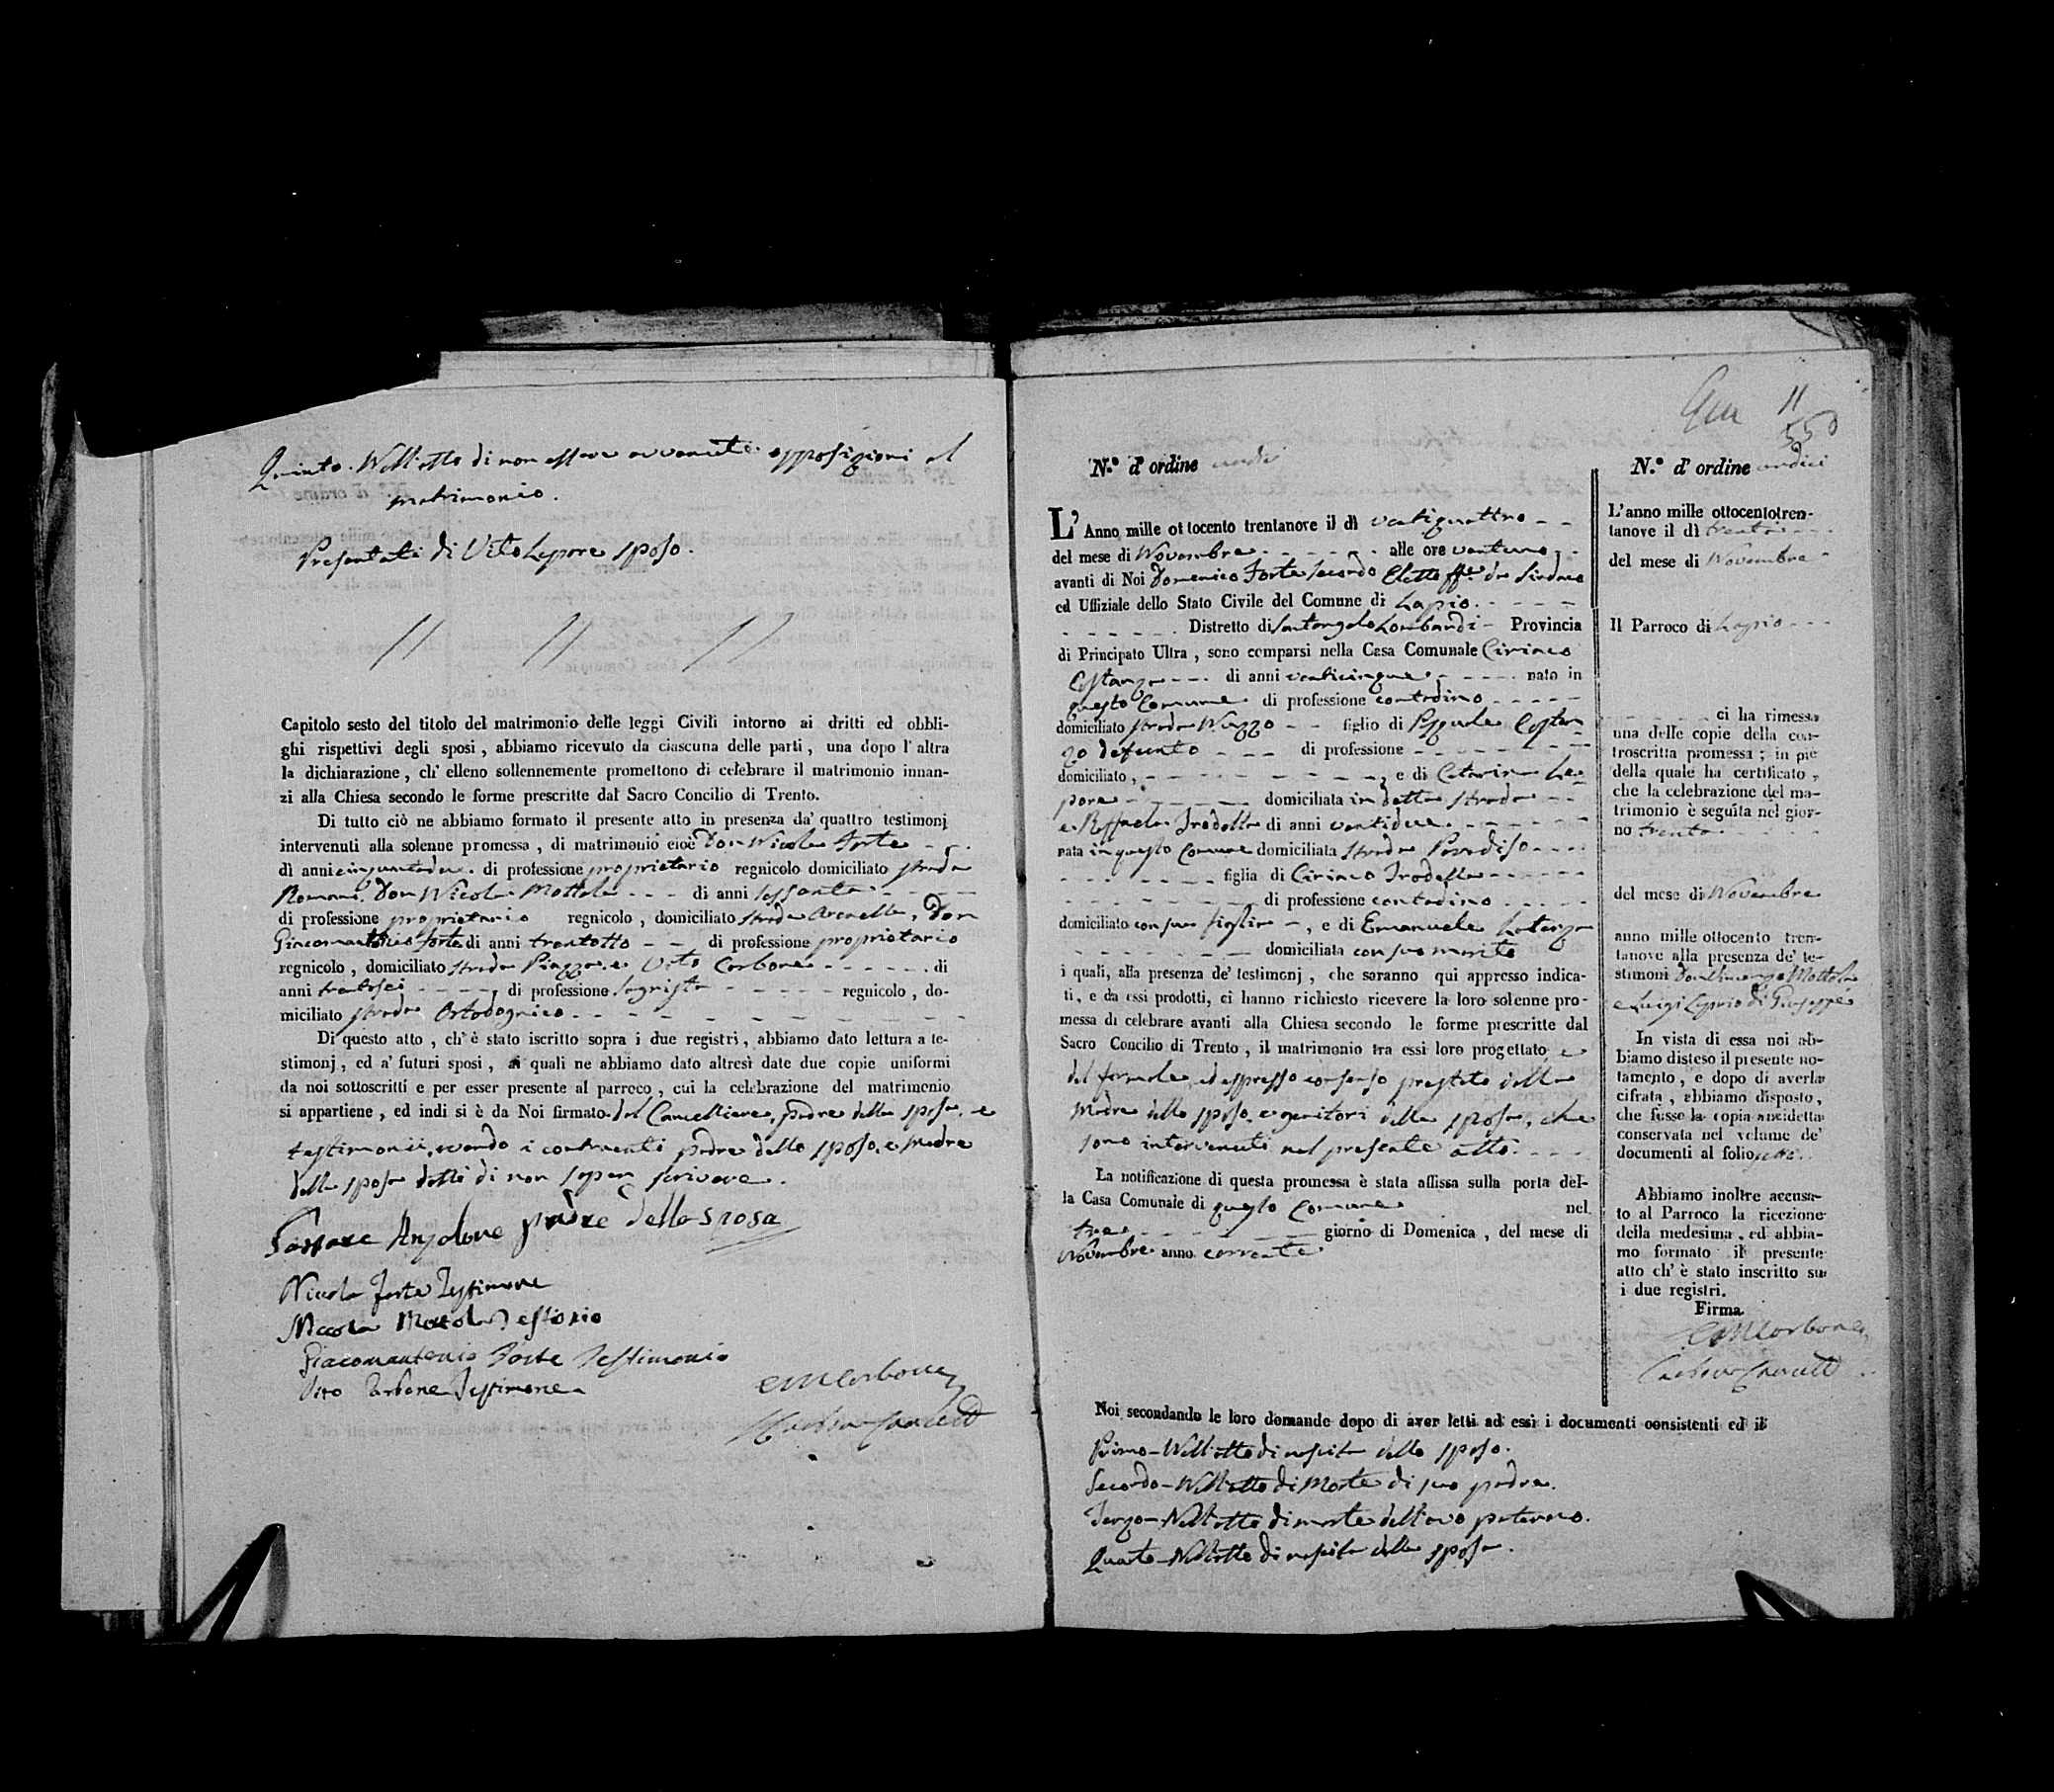 Quinto. Nell'atto di non essere avvenute opposizioni al
matrimonio.
Presentati di Vito Lepore sposo.
Capitolo sesto del titolo del matrimonio delle leggi Civili intorno ai dritti ed obbli-
ghi rispettivi degli sposi, abbiamo ricevuto da ciascuna delle parti, una dopo l'altra
la dichiarazione, ch'elleno sollennemente promettono di celebrare il matrimonio innan-
zi alla Chiesa secondo le forme prescritte dal Sacro Concilio di Trento.
Di tutto ciò ne abbiamo formato il presente atto in presenza da' quattro testimonj
intervenuti alla solenne promessa, di matrimonio cioè Don Nicola Forte
di anni cinquantadue di professione proprietario regnicolo domiciliato strada
Romani, Don Nicola Mottola di anni sessanta
di professione proprietario regnicolo, domiciliato strada Don
Giacomantonio Forte di anni trentotto di professione proprietario
regnicolo, domiciliato strada Piazza e Vito Carbone di
anni trentasei, di professione Sagrista regnicolo, do-
miciliato strada
Di questo atto, ch'è stato iscritto sopra i due registri, abbiamo dato lettura a te-
stimonj, ed a' futuri sposi, ai quali ne abbiamo dato altresì date due copie uniformi
da noi sottoscritti e per esser presente al parroco, cui la celebrazione del matrimonio
si appartiene, ed indi si è da Noi firmato dal Cancelliere, padre della sposa, e
testimonii, avendo i contraenti padre dello sposo, e madre
della sposa detto di non saper scrivere.
Gaspare Anzalone padre della sposa
Nicola Forte Testimone
Nicola Motola Testimonio
Giacomantonio Forte Testimonio
Vito Carbone Testimone
11
550
N.º d'ordine undici
L'Anno mille ottocento trentanove il dì ventiquattro
del mese di Novembre alle ore ventuno
avanti di Noi Domenico Forte secondo Eletto ff. da Sindaco
ed Uffiziale dello Stato Civile del Comune di Lapio.
Distretto di Santangelo Lombardi Provincia
di Principato Ultra, sono comparsi nella Casa Comunale Ciriaco
Costanzo di anni venticinque nato in
questo Comune di professione contadino
domiciliato strada figlio di Pasquale Costan
zo defunto di professione
domiciliato, e di Catarina Le=
pore domiciliata in detta strada
e Raffaela Trodella di anni ventidue
nata in questo Comune domiciliata strada Paradiso
figlia di Ciriaco Trodella
di professione contadino
domiciliato con sua figlia, e di Emanuele
domiciliata con suo marito
i quali, alla presenza de' testimonj, che saranno qui appresso indica-
ti, e da essi prodotti, ci hanno richiesto ricevere la loro solenne pro-
messa di celebrare avanti alla Chiesa secondo le forme prescritte dal
Sacro Concilio di Trento, il matrimonio tra essi loro progettato, e
del formale, ed espresso consenso prestato dalla
Madre dello sposo, e genitori della sposa, che
sono intervenuti nel presente atto.
La notificazione di questa promessa è stata affissa sulla porta del-
la Casa Comunale di questo Comune nel
tre giorno di Domenica, del mese di
Novembre anno corrente
Noi secondando le loro domande dopo di aver letti ad essi i documenti consistenti ed il
Primo - Nell'atto di nascita dello sposo.
Secondo - Nell'atto di Morte di suo padre.
Terzo - Nell'atto di morte dell'avo paterno.
Quarto - Nell'atto di nascita della sposa.
N.º d'ordine undici
L'anno mille ottocentotren-
tanove il dì trenta
del mese di Novembre
Il Parroco di Lapio
ci ha rimessa
una delle copie della con-
troscritta promessa; in piè
della quale ha certificato,
che la celebrazione del ma-
trimonio è seguita nel gior-
no trenta
del mese di Novembre
anno mille ottocento tren-
tanove alla presenza de' te-
stimoni Don Vincenzo Mottola
e Luigi di Giuseppe
In vista di essa noi ab-
biamo disteso il presente no-
tamento, e dopo di averla
cifrata, abbiamo disposto,
che fusse la copia anzidetta
conservata nel volume de'
documenti al folio
Abbiamo inoltre accusa-
to al Parroco la ricezione
della medesima, ed abbia-
mo formato il presente
atto ch'è stato inscritto su
i due registri.
Firma